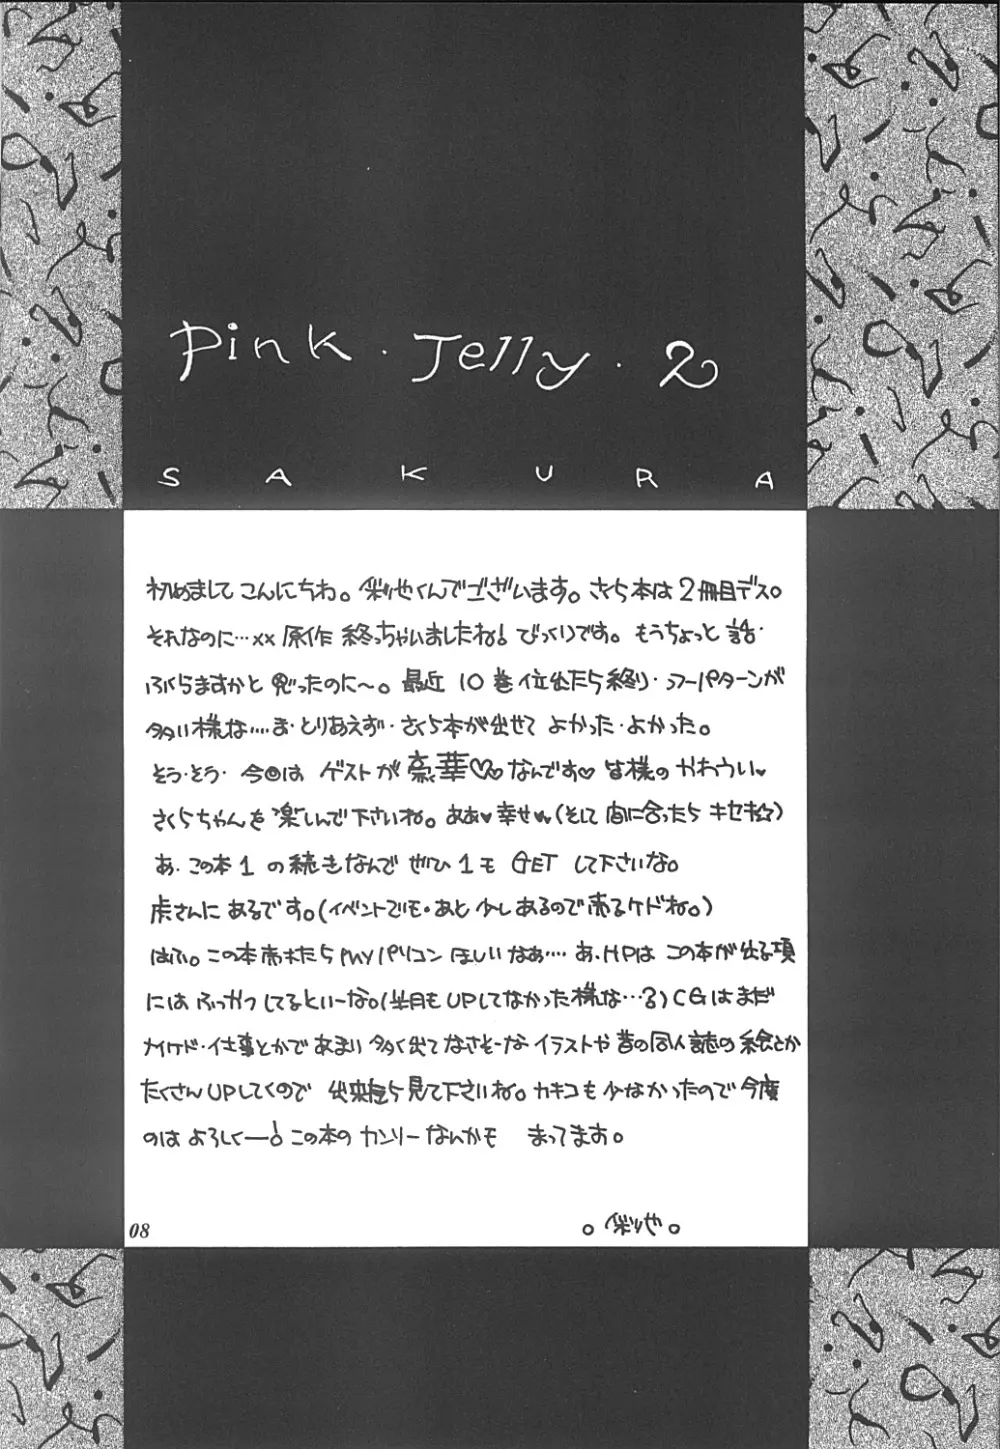 Pink・Jelly・2
SAKURA
初めまして こんにちわ。 くんでございます。さくら本は2冊目デス。
それなのに…×× 原作 終っちゃいましたね！びっくりです。もうちょっと 話・
ふくらますかと 思ったのに〜。最近 10巻 位出たら終り・ パターンが
多い様な…。ま・とりあえず・さくら本が出せて よかった・よかった。
そう・そう・今回は ゲストが 豪華♡なんです♡ 皆様の かわうい♥
さくらちゃんを 楽しんで下さいね。ああ♥幸せ♥(そして 間に合ったら キセキ☆)
あ・この本 1 の続きなんで ぜひ 1も GET して下さいな。
虎さんに あるです。(イベントでも・あと 少しあるので売るケドね。)
はふ。この本売れたら My パソコン ほしい なあ…。あ、HPは この本が出る頃
にはふっかつ してるといーな。(半月も UPしてなかった様な…る) CGはまだ
ナイケド・仕事とかであまり 多く出て なさそーな イラストや 昔の同人誌の 絵とか
たくさん UPしてくので 出来たら見て下さいね。カキコも 少なかったので今度
のは よろしくー！この本の カンソーなんかも まってます。
08